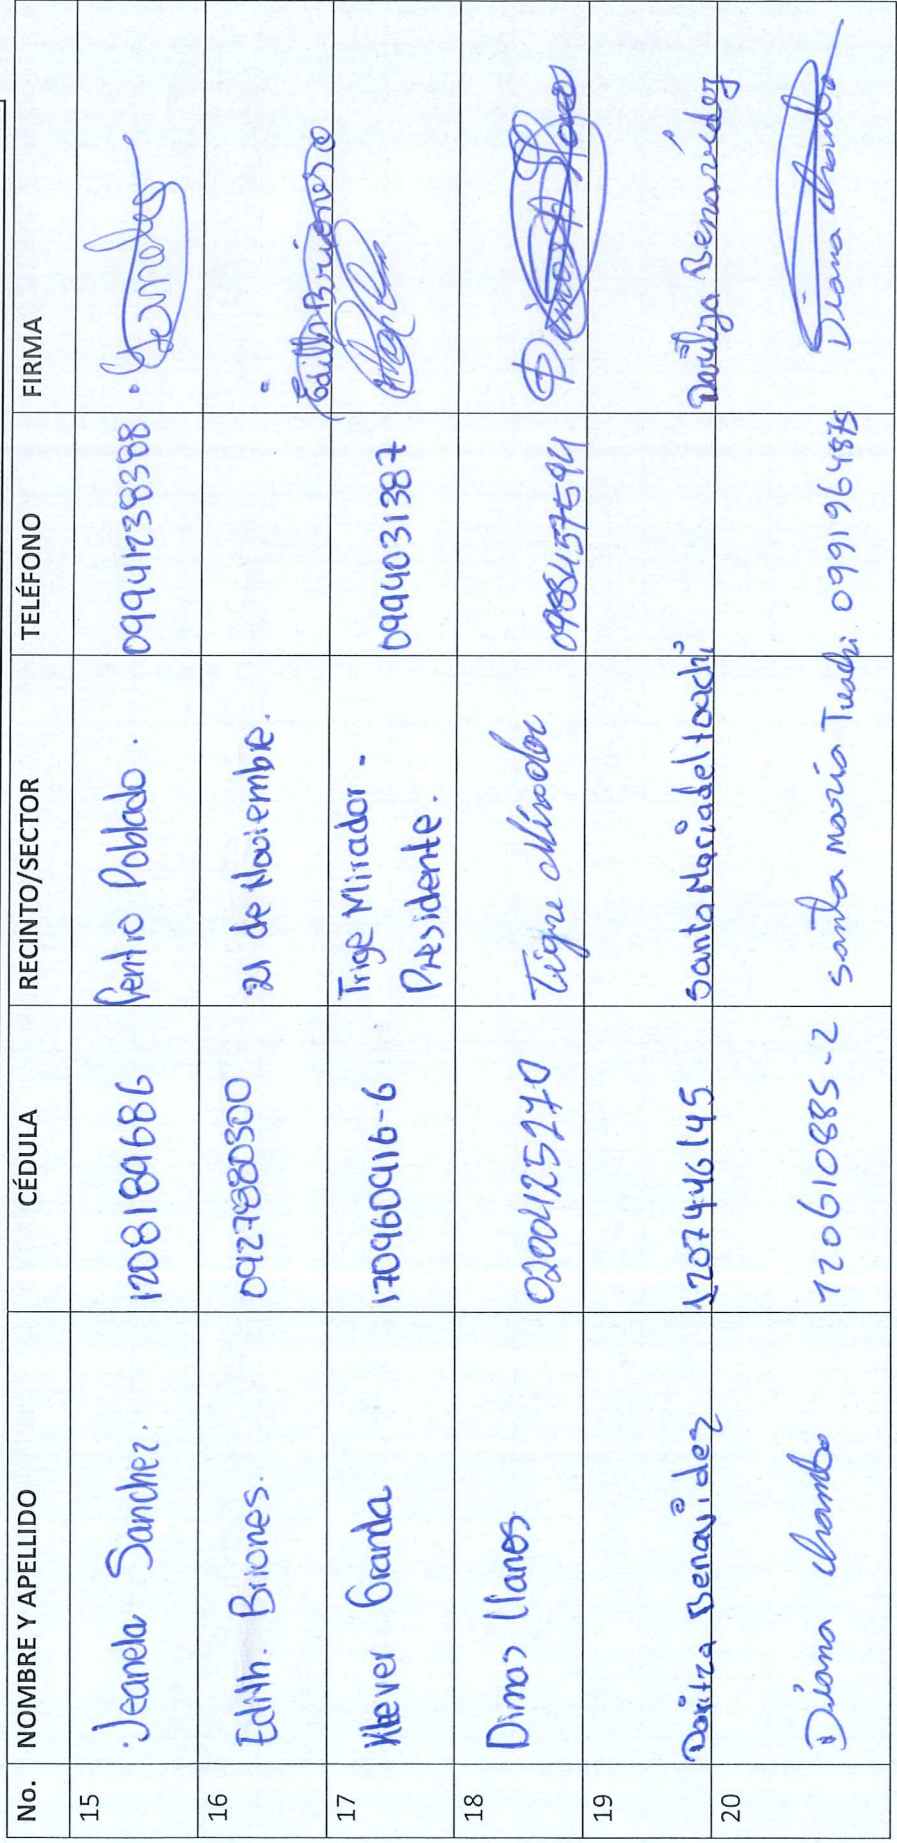 No. NOMBRE Y APELLIDO CÉDULA RECINTO/SECTOR TELÉFONO FIRMA
15 Jeanela Sanchez. 1208189686 Centro Poblado. 09941238388
16 Edith. Briones. 0927880300 21 de Noviembre. Edith Briones
17 Klever Granda 170960416-6 Trige Mirador - 0994031387
Presidente.
18 Dimas Llanos 0200425270 Tigre Mirador 098457594 Dimas Llanos
19 Daritza Benavidez 1207446145 Santa Maria del toachi Daritza Benavidez
20 Diana Chambo 120610885-2 santa maria Toachi. 0991964875 Diana Chambo